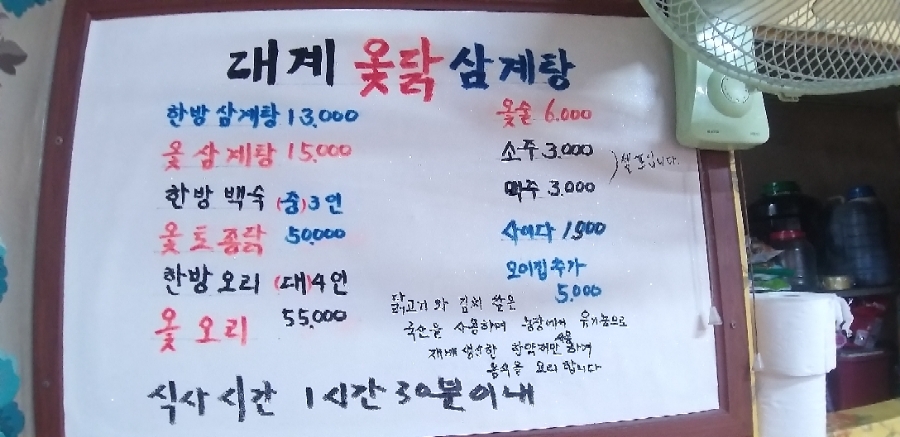 대계 옻닭 삼계탕
한방 삼계탕 13,000
옻 삼계탕 15,000
한방 백숙 (중)3인
옻 토종닭 50,000
한방오리 (대)4인
옻 오리 55,000
옻술 6,000
소주 3,000
맥주 3,000
셀프입니다.
사이다 1,500
모이집추가
5,000
닭고기와 김치 쌀은
국산을 사용하며 농장에서 유기농으로
재배 생산한 한약재만 사용 하여
음식을 요리 합니다
식사시간 1시간 30분이내